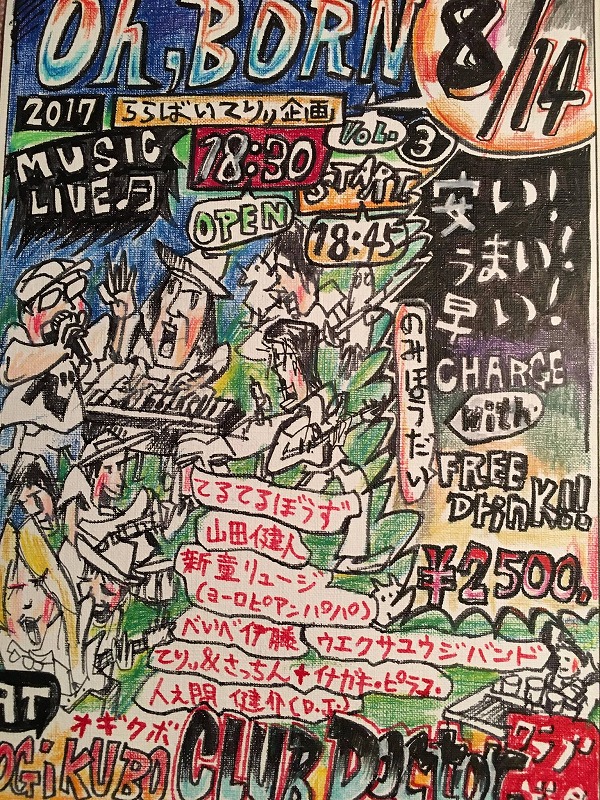 Oh, BORN
8/14
2017 ららばいてりッ企画
VOL. 3
MUSIC
LIVE♬
18:30
OPEN
START
18:45
安い!
うまい!
早い!
のみほうだい
CHARGE
with
FREE
Drink!!
¥2500.
てるてるぼうず
山田健人
新童リュージ
(ヨーロピアンパパパ)
べいべ伊藤 ウエクサユウジバンド
てりッ&さっちん+イナガキ・ピラコ・
健介(D.J.)
AT
オギクボ
OGiKUBO CLUB DOCTOR クラブ